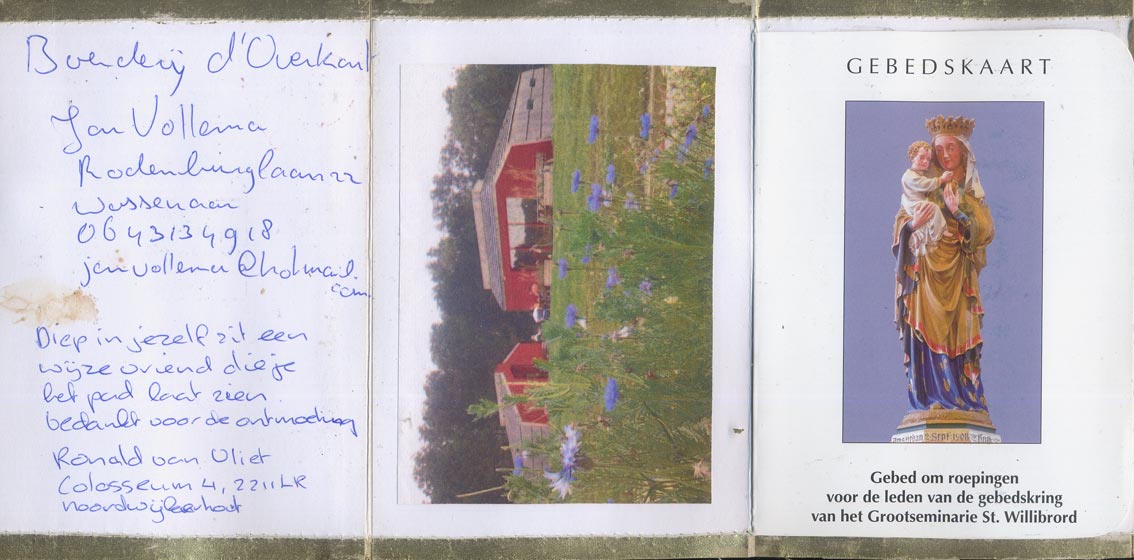 Boerderij d'Overkant
Jan Vollema
Rodenburglaan 22
Wassenaar
0643134918
janvollema@hotmail.
com
Diep in jezelf zit een
wijze vriend die je
het pad laat zien
bedankt voor de ontmoeting
Ronald van Vliet
Colosseum 4, 2211LR
Noordwijkerhout
GEBEDSKAART
Sept 1908
Gebed om roepingen
voor de leden van de gebedskring
van het Grootseminarie St. Willibrord